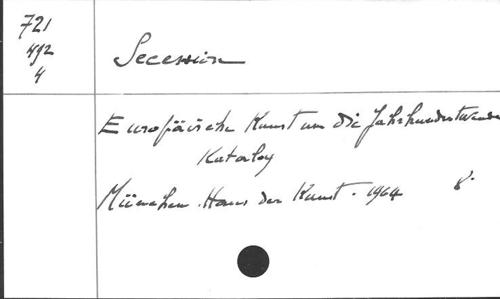 721
492
4
Secession
Europäische Kunst um die Jahrhundertwende
Katalog
München. Haus der Kunst. 1964 8°